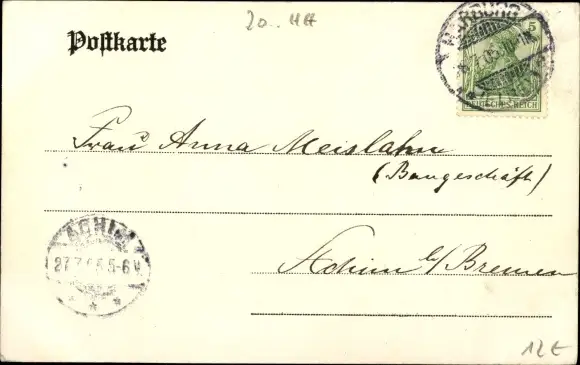 20.. HH
Postkarte
HARBURG
5
7.05
DEUTSCHES REICH
Frau Anna Meislahn
(Baugeschäft)
ACHIM
27.7.05.5-6V.
Achim b/Bremen
12€